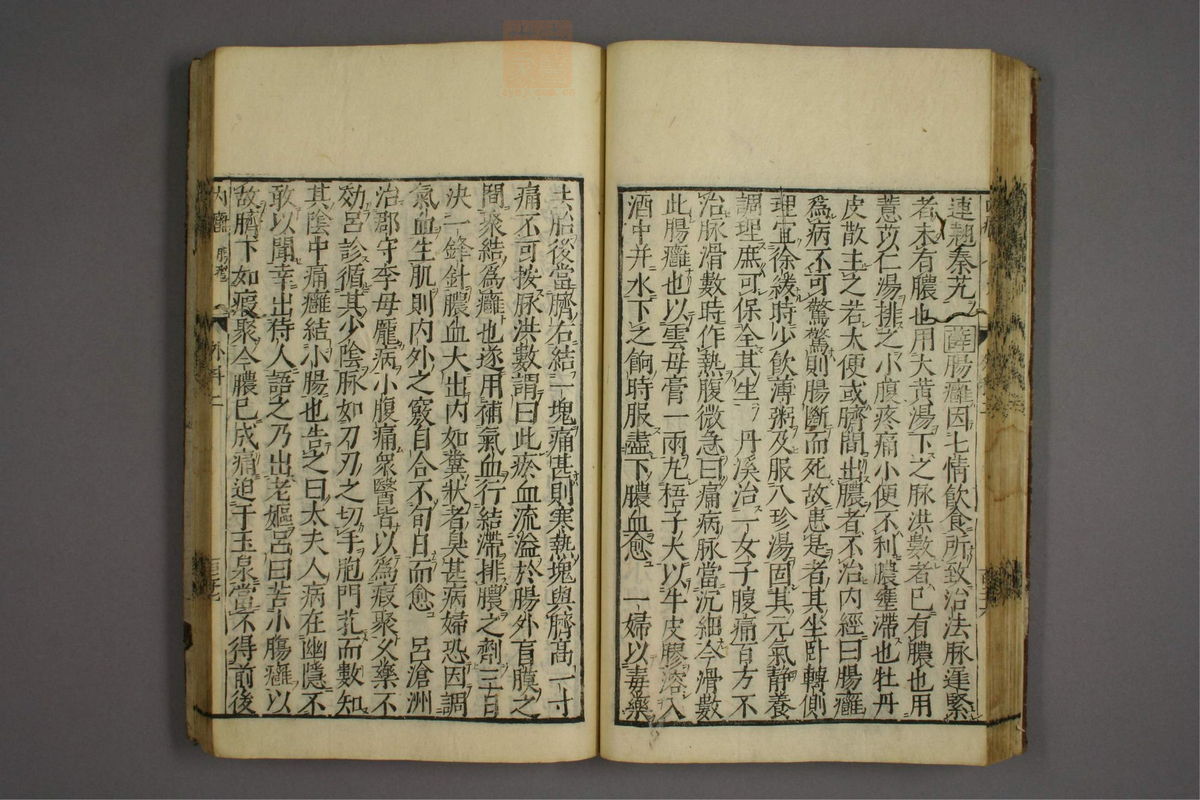 連翹秦艽 薗腸癰因七情飲食所致治法脉遲緊
者未有膿也用大黃湯下之脉洪數者已有膿也用
薏苡仁湯排之小腹疼痛小便不利膿壅滯也牡丹
皮散主之若大便或臍間出膿者不治內經曰腸癰
為病不可驚驚則腸斷而死故患是者其坐臥轉側
理宜徐緩時少飲薄粥及服八珍湯固其元氣靜養
調理庶可保全其生 丹溪治一女子腹痛百方不
治脉滑數時作熱腹微急曰痛病脉當沉細今滑數
此腸癰也以雲母膏一兩丸梧子大以牛皮膠溶入
酒中并水下之餉時服盡下膿血愈 一婦以毒藥
去胎後當臍右結一塊痛甚則寒熱塊與臍高一寸
痛不可按脉洪數謂曰此瘀血流溢於腸外肓膜之
間聚結為癰也遂用補氣血行結滯排膿之劑三日
決一鋒針膿血大出內如糞狀者臭甚病婦恐因調
氣血生肌則內外之竅自合不旬日而愈 呂滄洲
治郡守李母龐病小腹痛衆醫皆以為瘕聚久藥不
効呂診循其少陰脉如刀刃之切手胞門芤而數知
其陰中痛癰結小腸也告之曰太夫人病在幽隱不
敢以聞幸出侍人語之乃出老嫗呂曰苦小腸癰以
故臍下如瘕聚今膿已成痛迫于玉泉當不得前後
內癰 外科二